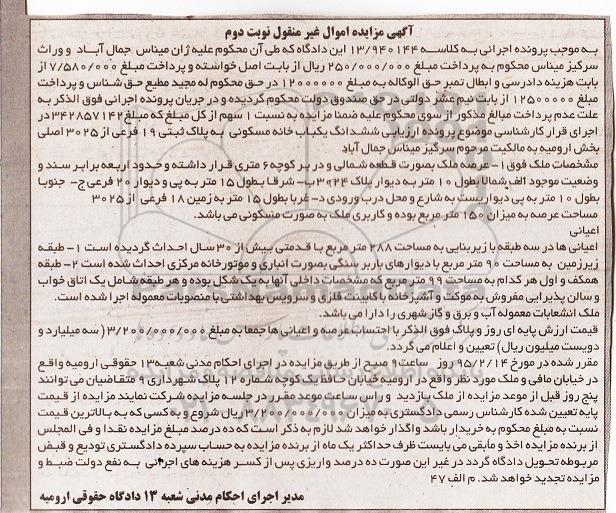 آگهی مزایده اموال غیر منقول نوبت دوم
به موجب پرونده اجرائی به کلاسه ۱۳/۹۴۰۱۴۴ این دادگاه که طی آن محکوم علیه ژان میناس جمال آباد و وراث
سرکیز میناس محکوم به پرداخت مبلغ ۲۵۰/۰۰۰/۰۰۰ ریال از بابت اصل خواسته و پرداخت مبلغ ۷/۵۸۰/۰۰۰ از
بابت هزینه دادرسی و ابطال تمبر حق الوکاله به مبلغ ۱۲۰۰۰۰۰۰ در حق محکوم له مجید مطیع حق شناس و پرداخت
مبلغ ۱۲۵۰۰۰۰۰ از بابت نیم عشر دولتی در حق صندوق دولت محکوم گردیده و در جریان پرونده اجرائی فوق الذکر به
علت عدم پرداخت مبالغ مذکور از سوی محکوم علیه ضمنا مزایده به نسبت ۱ سهم از کل مبلغ که مبلغ ۳۴۲۸۵۷۱۴۲در
اجرای قرار کارشناسی موضوع پرونده ارزیابی ششدانگ یکباب خانه مسکونی به پلاک ثبتی ۱۹ فرعی از ۳۰۲۵ اصلی
بخش ارومیه به مالکیت مرحوم سرکیز میناس جمال آباد
مشخصات ملک فوق۱- عرصه ملک بصورت قطعه شمالی و در بر کوچه ۶ متری قرار داشته و حدود اربعه برابر سند و
وضعیت موجود الف شمالا بطول ۱۰ متر به دیوار پلاک ۳۰۲۴ ب- شرقا بطول ۱۵ متر به پی و دیوار ۲۰ فرعی ج- جنوبا
بطول ۱۰ متر به پی دیواریست به شارع و محل درب ورودی د- غربا بطول ۱۵ متر به زمین ۱۸ فرعی از ۳۰۲۵
مساحت عرصه به میزان ۱۵۰ متر مربع بوده و کاربری ملک به صورت مسکونی می باشد.
اعیانی
اعیانی ها در سه طبقه با زیربنایی به مساحت ۲۸۸ متر مربع با قدمتی بیش از ۳۰ سال احداث گردیده است ۱- طبقه
زیرزمین به مساحت ۹۰ متر مربع با دیوارهای باربر سنگی بصورت انباری و موتور خانه مرکزی احداث شده است ۲- طبقه
همکف و اول هر کدام به مساحت ۹۹ متر مربع که مشخصات داخلی آنها به یک شکل بوده و هر طبقه شامل یک اتاق خواب
و سالن پذیرایی مفروش به موکت و آشپزخانه با کابینت فلزی و سرویس بهداشتی با منصوبات معموله اجرا شده است.
ملک انشعابات معموله آب و برق و گاز شهری را دارا می باشد.
قیمت ارزش پایه ای روز و پلاک فوق الذکر با احتساب عرصه و اعیانی ها جمعا به مبلغ ۳/۲۰۰/۰۰۰/۰۰۰ ( سه میلیارد و
دویست میلیون ریال) تعیین و اعلام می گردد.
مقرر شده در مورخ ۹۵/۲/۱۴ روز ساعت ۹ صبح از طریق مزایده در اجرای احکام مدنی شعبه ۱۳ حقوقی ارومیه واقع
در خیابان مافی و ملک مورد نظر واقع در ارومیه خیابان حافظ یک کوچه شماره ۱۲ پلاک شهرداری ۹ متقاضیان می توانند
پنج روز قبل از موعد مزایده از ملک بازدید و راس ساعت موعد مقرر در جلسه مزایده شرکت نمایند مزایده از قیمت
پایه تعیین شده کارشناس رسمی دادگستری به میزان ۳/۲۰۰/۰۰۰/۰۰۰ ریال شروع و به کسی که به بالاترین قیمت
نسبت به مبلغ محکوم به خریدار باشد واگذار خواهد شد لازم به ذکر است که ده درصد مبلغ مزایده نقدا و فی المجلس
از برنده مزایده اخذ و مابقی می بایست ظرف حداکثر یک ماه از برنده مزایده به حساب سپرده دادگستری تودیع و قبض
مربوطه تحویل دادگاه گردد در غیر این صورت ده درصد واریزی پس از کسر هزینه های اجرائی به نفع دولت ضبط و
مزایده تجدید خواهد شد. م الف ۴۷
مدیر اجرای احکام مدنی شعبه ۱۳ دادگاه حقوقی ارومیه